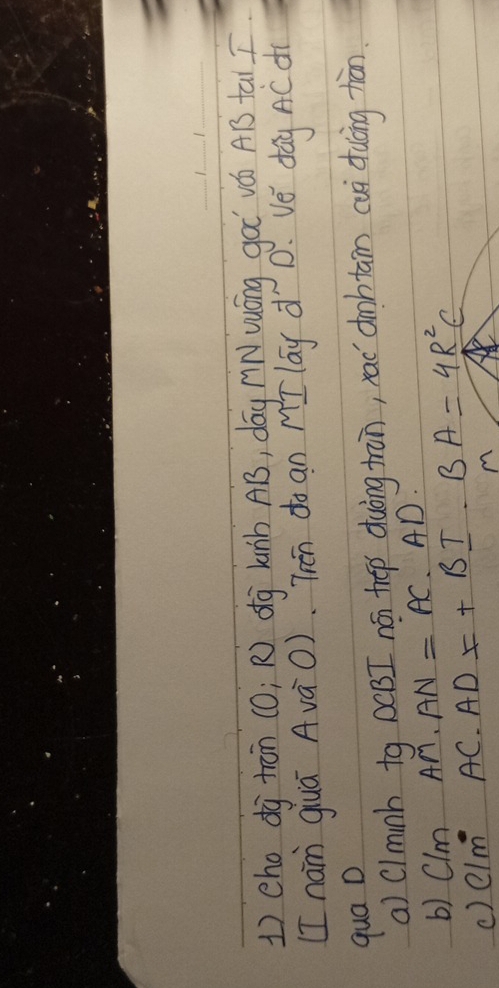 1) Cho đg tròn (O; R) đg kính AB, dây MN vuông góc với AB tại I.
(I nằm giữa A và O). Trên đoạn MI lấy đ' D. Vẽ dây AC đi
qua D
a) C/minh tg DCBI nội tiếp đường tròn, xác định tâm của đường tròn.
b) C/m AM. AN = AC. AD.
c) C/m AC. AD + BI. BA = 4R²
C
M